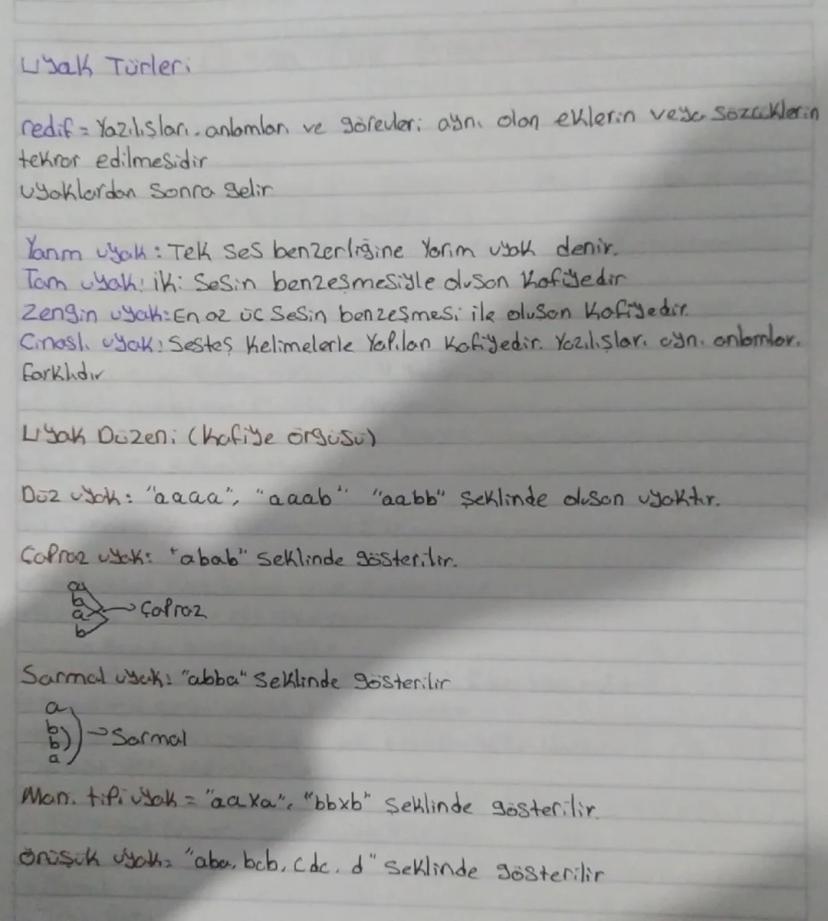 Uyak Türleri
redif = Yazılışları, anlamları ve görevleri aynı olan eklerin veya sözcüklerin
tekrar edilmesidir
uyaklardan sonra gelir
Yarım uyak: Tek ses benzerliğine Yarım uyak denir.
Tam uyak: iki sesin benzeşmesiyle oluşan kafiyedir
Zengin uyak: En az üç sesin benzeşmesi ile oluşan kafiyedir.
Cinaslı uyak: Sesteş kelimelerle yapılan kafiyedir. Yazılışları aynı anlamları
farklıdır
Uyak Düzeni (kafiye örgüsü)
Düz uyak: "aaaa", "aaab" "aabb" şeklinde oluşan uyaktır.
Çapraz uyak: "abab" şeklinde gösterilir.
a
b
a → Çapraz
b
Sarmal uyak: "abba" şeklinde gösterilir
a
b → Sarmal
b
a
Mani tipi uyak = "aaxa", "bbxb" şeklinde gösterilir.
örüşük uyak = "aba, bcb, cdc, d" şeklinde gösterilir